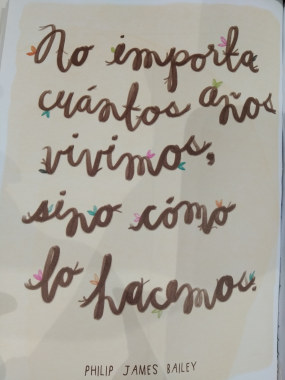 No importa
cuántos años
vivimos,
sino cómo
lo hacemos.
PHILIP JAMES BAILEY